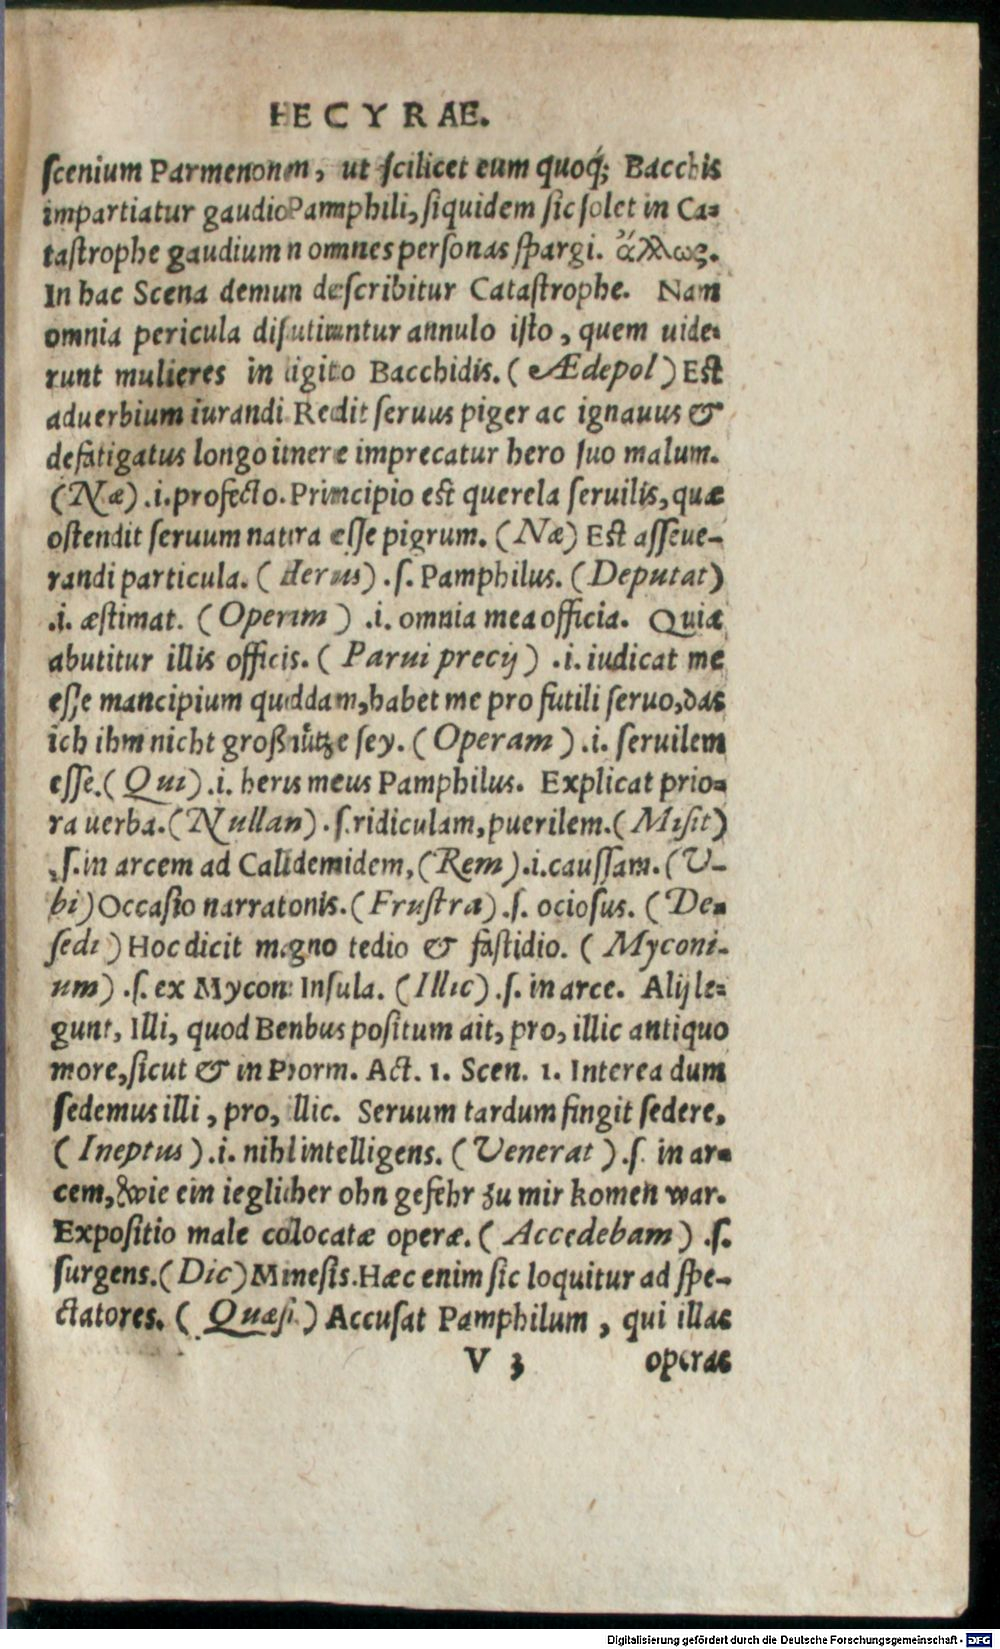 HECYRAE.
scenium Parmenonem, ut scilicet eum quoq́; Bacchis
impartiatur gaudio Pamphili, siquidem sic solet in Ca-
tastrophe gaudium in omnes personas spargi. ἄλλως.
In hac Scena demum describitur Catastrophe. Nam
omnia pericula discutiuntur annulo isto, quem uide-
runt mulieres in digito Bacchidis. (Ædepol) Est
aduerbium iurandi Redit seruus piger ac ignauus &
defatigatus longo itinere imprecatur hero suo malum.
(Næ) .i. profecto. Principio est querela seruilis, quæ
ostendit seruum natura esse pigrum. (Næ) Est asseue-
randi particula. (Herus) .s. Pamphilus. (Deputat)
.i. æstimat. (Operam) .i. omnia mea officia. Quia
abutitur illis officijs. (Parui precij) .i. iudicat me
esse mancipium quoddam, habet me pro futili seruo, das
ich ihm nicht groß nütze sey. (Operam) .i. seruilem
esse. (Qui) .i. herus meus Pamphilus. Explicat prio-
ra uerba. (Nullam) .s. ridiculam, puerilem. (Misit)
.s. in arcem ad Callidemidem, (Rem) .i. caussam. (V-
bi) Occasio narrationis. (Frustra) .s. ociosus. (De-
sedi) Hoc dicit magno tedio & fastidio. (Myconi-
um) .s. ex Mycone Insula. (Illic) .s. in arce. Alij le-
gunt, Illi, quod Benbus positum ait, pro, illic antiquo
more, sicut & in Phorm. Act. 1. Scen. 1. Interea dum
sedemus illi, pro, illic. Seruum tardum fingit sedere,
(Ineptus) .i. nihil intelligens. (Venerat) .s. in ar-
cem, wie ein ieglicher ohn gefehr zu mir komen war.
Expositio male colocatæ operæ. (Accedebam) .s.
surgens. (Dic) Mimesis. Hæc enim sic loquitur ad spe-
ctatores. (Quasi) Accusat Pamphilum, qui illas
V 3 operas
Digitalisierung gefördert durch die Deutsche Forschungsgemeinschaft - DFG